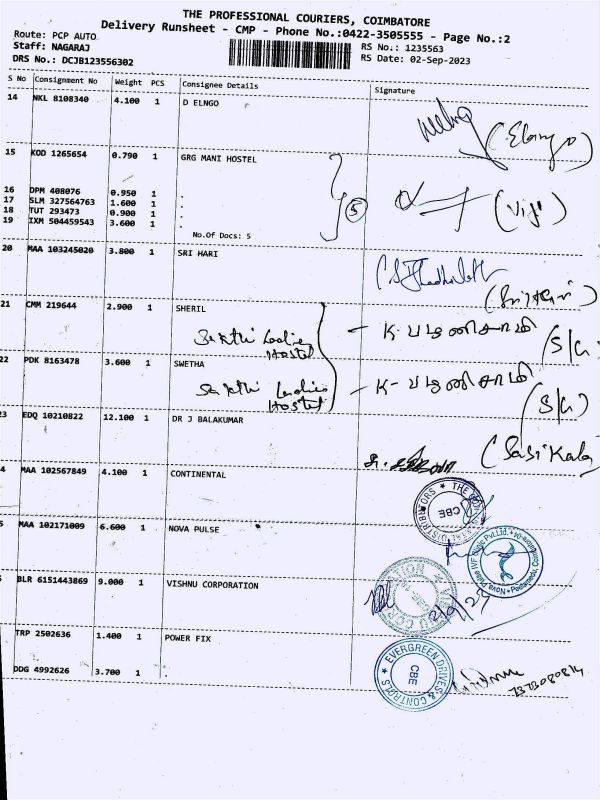 THE PROFESSIONAL COURIERS, COIMBATORE
Delivery Runsheet - CMP - Phone No.:0422-3505555 - Page No.:2
Route: PCP AUTO
Staff: NAGARAJ RS No.: 1235563
DRS No.: DCJB123556302 RS Date: 02-Sep-2023
S No Consignment No Weight PCS Consignee Details Signature
14 NKL 8108340 4.100 1 D ELNGO
(Elango)
15 KOD 1265654 0.790 1 GRG MANI HOSTEL
16 DPM 408076 0.950 1 .
17 SLM 327564763 1.600 1 . 5 (Viji)
18 TUT 293473 0.900 1 .
19 IXM 504459543 3.600 1 .
No.Of Docs: 5
20 MAA 103245020 3.800 1 SRI HARI
21 CMM 219644 2.900 1 SHERIL
Sakthi Ladies Hostel – K. பழனிசாமி (S/G)
22 PDK 8163478 3.600 1 SWETHA
Sakthi Ladies Hostel – K. பழனிசாமி (S/G)
23 EDQ 10210822 12.100 1 DR J BALAKUMAR
(Sasikala)
4 MAA 102567849 4.100 1 CONTINENTAL
DISTRIBUTORS ★ THE
CBE
5 MAA 102171009 6.600 1 NOVA PULSE
Nova Pulse IVF Clinic Pvt.Ltd.
BLR 6151443869 9.000 1 VISHNU CORPORATION
2/9/23
TRP 2502636 1.400 1 POWER FIX
EVERGREEN DRIVES & CONTROLS
CBE
DDG 4992626 3.700 1 .